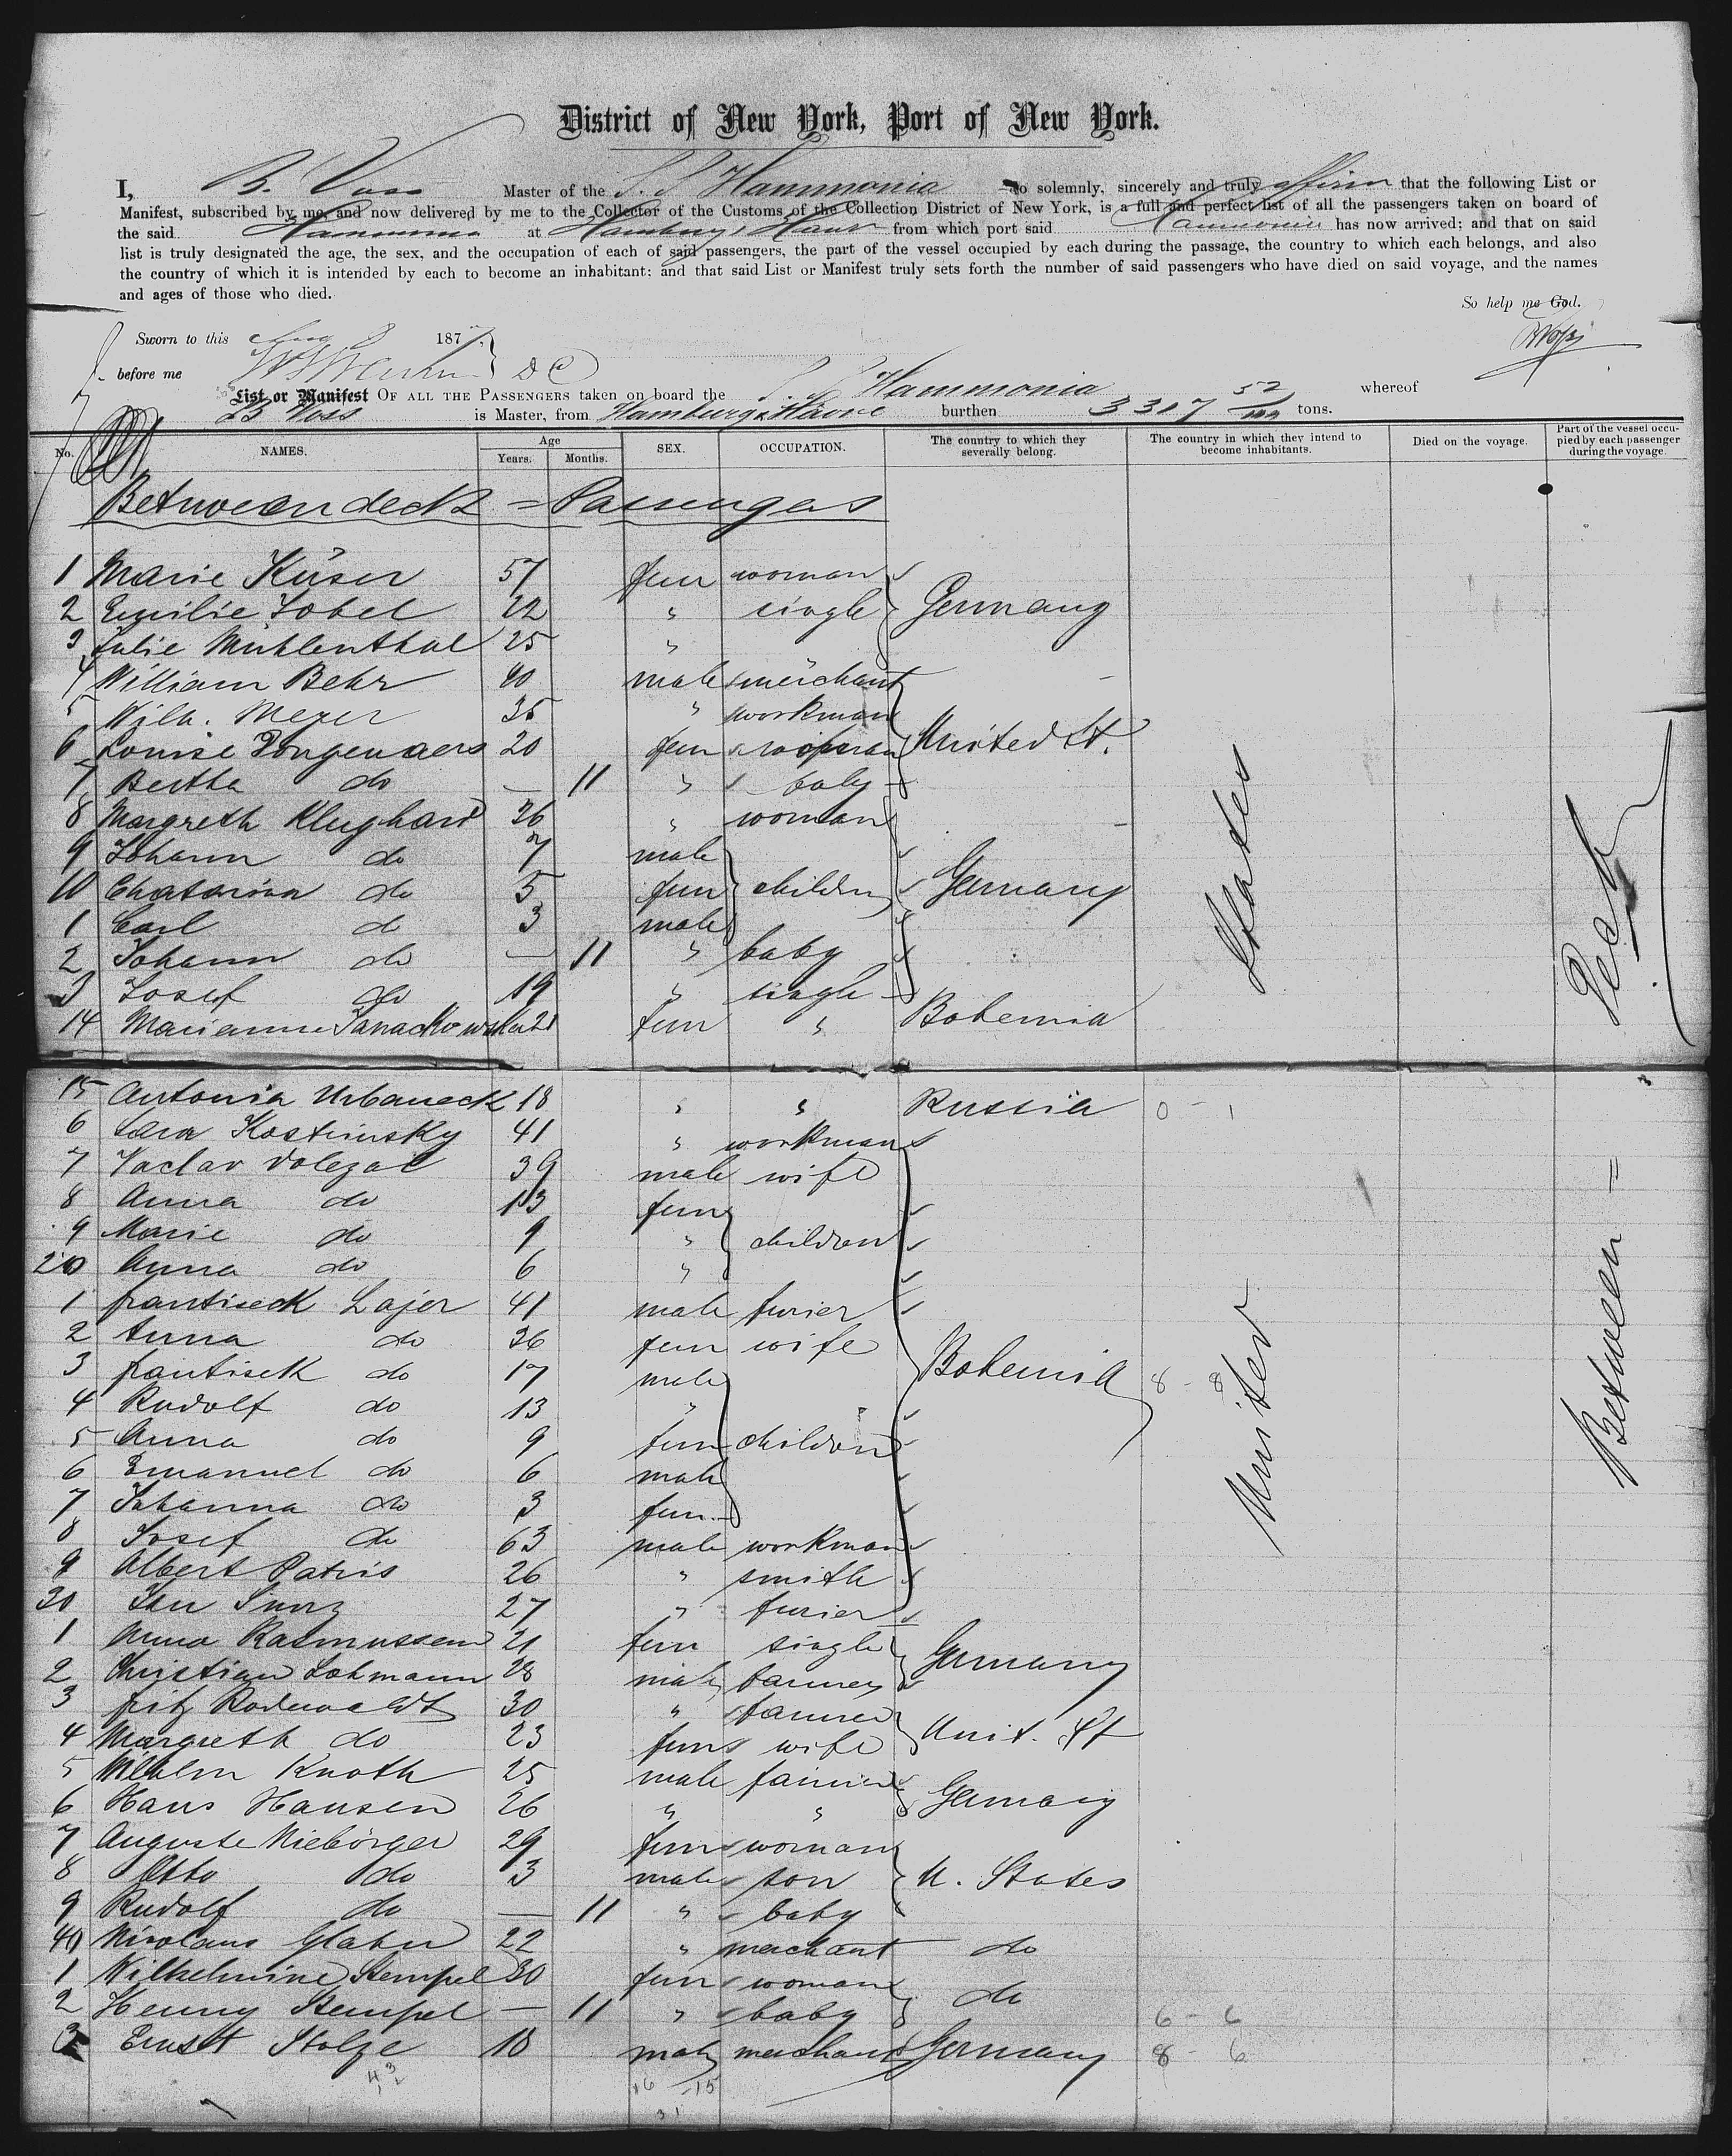 District of New York, Port of New York.
I, B. Voss Master of the S. S. Hammonia do solemnly, sincerely and truly affirm that the following List or
Manifest, subscribed by me, and now delivered by me to the Collector of the Customs of the Collection District of New York, is a full and perfect list of all the passengers taken on board of
the said Hammonia at Hamburg, Havre from which port said Hammonia has now arrived; and that on said
list is truly designated the age, the sex, and the occupation of each of said passengers, the part of the vessel occupied by each during the passage, the country to which each belongs, and also
the country of which it is intended by each to become an inhabitant; and that said List or Manifest truly sets forth the number of said passengers who have died on said voyage, and the names
and ages of those who died.
So help me God.
Sworn to this Aug 8 187
BVoss
before me D C
List or Manifest OF ALL THE PASSENGERS taken on board the S. S. Hammonia whereof
B Voss is Master, from Hamburg & Havre burthen 3307 52/100 tons.
No. NAMES. Age Years. Months. SEX. OCCUPATION. The country to which they severally belong. The country in which they intend to become inhabitants. Died on the voyage. Part of the vessel occupied by each passenger during the voyage.
Betweendeck = Passengers
1 Marie Küser 57 fem woman
2 Emilie Sobel 22 " single Germany
3 Julie Mühlenthal 25 "
4 William Behr 40 male merchant
5 Wilh. Meyer 35 " workman
6 Louise Dongenaers 20 fem woman United St.
7 Bertha do — 11 " baby
8 Margreth Klughard 26 " woman
9 Johann do 7 male
10 Chatarina do 5 fem children Germany
1 Carl do 3 male
2 Johann do — 11 " baby
3 Josef do 19 " single
14 Marianne Janackowska 21 fem " Bohemia
15 Antonia Urbaneck 18 " " Russia 0 - 1
6 Kostrinsky 41 " workman
7 Vaclav Dolezal 39 male wife
8 Anna do 13 fem
9 Marie do 9 " children
20 Anna do 6 "
1 frantiseck Lajer 41 male furier
2 Anna do 36 fem wife
3 frantisek do 17 male Bohemia 8 - 8
4 Rudolf do 13 "
5 Anna do 9 fem children
6 Emanuel do 6 male
7 Johanna do 3 fem.
8 Josef do 63 male workman
9 Albert Patris 26 " smith
30 Jan 27 " furier
1 Anna Rasmussen 21 fem single Germany
2 Christian Lohmann 28 male farmer
3 fritz Rodewaldt 30 " farmer
4 Margreth do 23 fem wife Unit. St
5 Wilhelm Knoth 25 male farmer
6 Hans Hansen 26 " " Germany
7 Auguste Niebörger 29 fem woman
8 Otto do 3 male son U. States
9 Rudolf do — 11 " baby
40 Nicolaus Glahn 22 " merchant do
1 Wilhelmine Stempel 30 fem woman
2 Henny Stempel — 11 " baby do 6 - 6
3 Ernst Stolze 18 male merchant Germany 8 - 6
United States
Between = Deck
43
16 -15
31